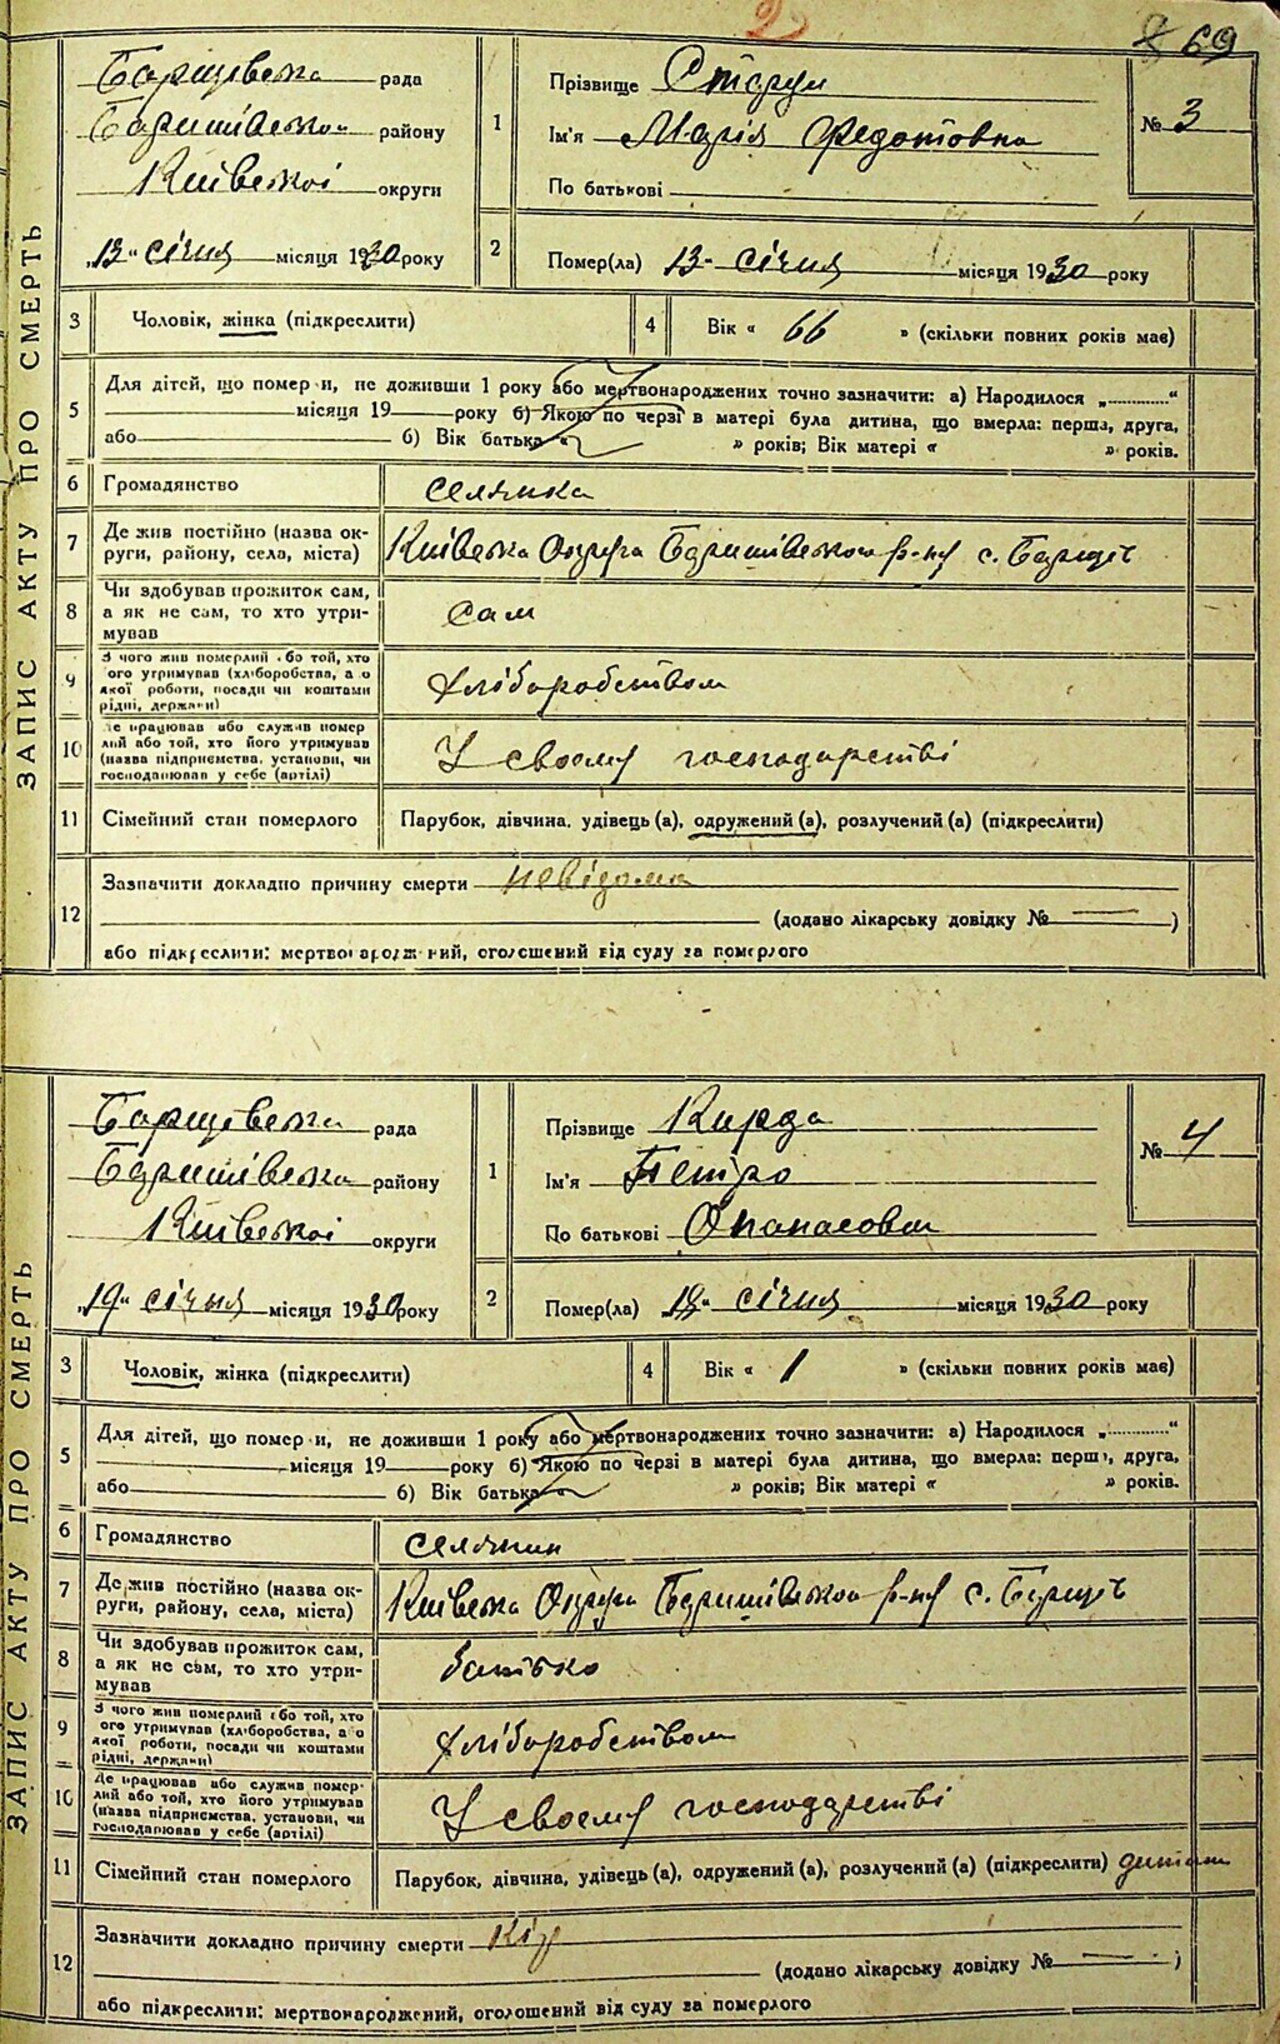 2
69
ЗАПИС АКТУ ПРО СМЕРТЬ
Барщівська рада
Баришівськог району
Київської округи
„13“ січня місяця 1930 року
1
Прізвище Старун
Ім'я Марія Федотовна
По батькові
№ 3
2
Помер(ла) 13 січня місяця 1930 року
3 Чоловік, жінка (підкреслити)
4 Вік « 66 » (скільки повних років має)
5 Для дітей, що померли, не доживши 1 року або мертвонароджених точно зазначити: а) Народилося „............“
місяця 19 року б) Якою по черзі в матері була дитина, що вмерла: перша, друга,
або б) Вік батька « » років; Вік матері « » років.
6 Громадянство селянка
7 Де жив постійно (назва ок-
руги, району, села, міста) Київська Округа Баришівського р-ну с. Барщів
8 Чи здобував прожиток сам,
а як не сам, то хто утри-
мував сам
9 З чого жив померлий або той, хто
його утримував (хліборобства, а о
якої роботи, посади чи коштами
рідні, держави) хліборобством
10 Де працював або служив помер
лий або той, хто його утримував
(назва підприємства, установи, чи
господарював у себе (артілі) У своему господарстві
11 Сімейний стан померлого Парубок, дівчина, удівець (а), одружений (а), розлучений (а) (підкреслити)
12 Зазначити докладно причину смерти невідома
(додано лікарську довідку № — )
або підкреслити: мертвонароджений, оголошений від суду за померлого
ЗАПИС АКТУ ПРО СМЕРТЬ
Барщівська рада
Баришівська району
Київської округи
„19“ січня місяця 1930 року
1
Прізвище Кирда
Ім'я Петро
По батькові Опанасович
№ 4
2
Помер(ла) „19“ січня місяця 1930 року
3 Чоловік, жінка (підкреслити)
4 Вік « 1 » (скільки повних років має)
5 Для дітей, що померли, не доживши 1 року або мертвонароджених точно зазначити: а) Народилося „............“
місяця 19 року б) Якою по черзі в матері була дитина, що вмерла: перша, друга,
або б) Вік батька « » років; Вік матері « » років.
6 Громадянство селянин
7 Де жив постійно (назва ок-
руги, району, села, міста) Київська Округа Баришівського р-ну с. Барщів
8 Чи здобував прожиток сам,
а як не сам, то хто утри-
мував батько
9 З чого жив померлий або той, хто
його утримував (хліборобства, а о
якої роботи, посади чи коштами
рідні, держави) хліборобством
10 Де працював або служив помер-
лий або той, хто його утримував
(назва підприємства, установи, чи
господарював у себе (артілі) У своему господарстві
11 Сімейний стан померлого Парубок, дівчина, удівець (а), одружений (а), розлучений (а) (підкреслити) дитина
12 Зазначити докладно причину смерти Кір
(додано лікарську довідку № — )
або підкреслити: мертвонароджений, оголошений від суду за померлого